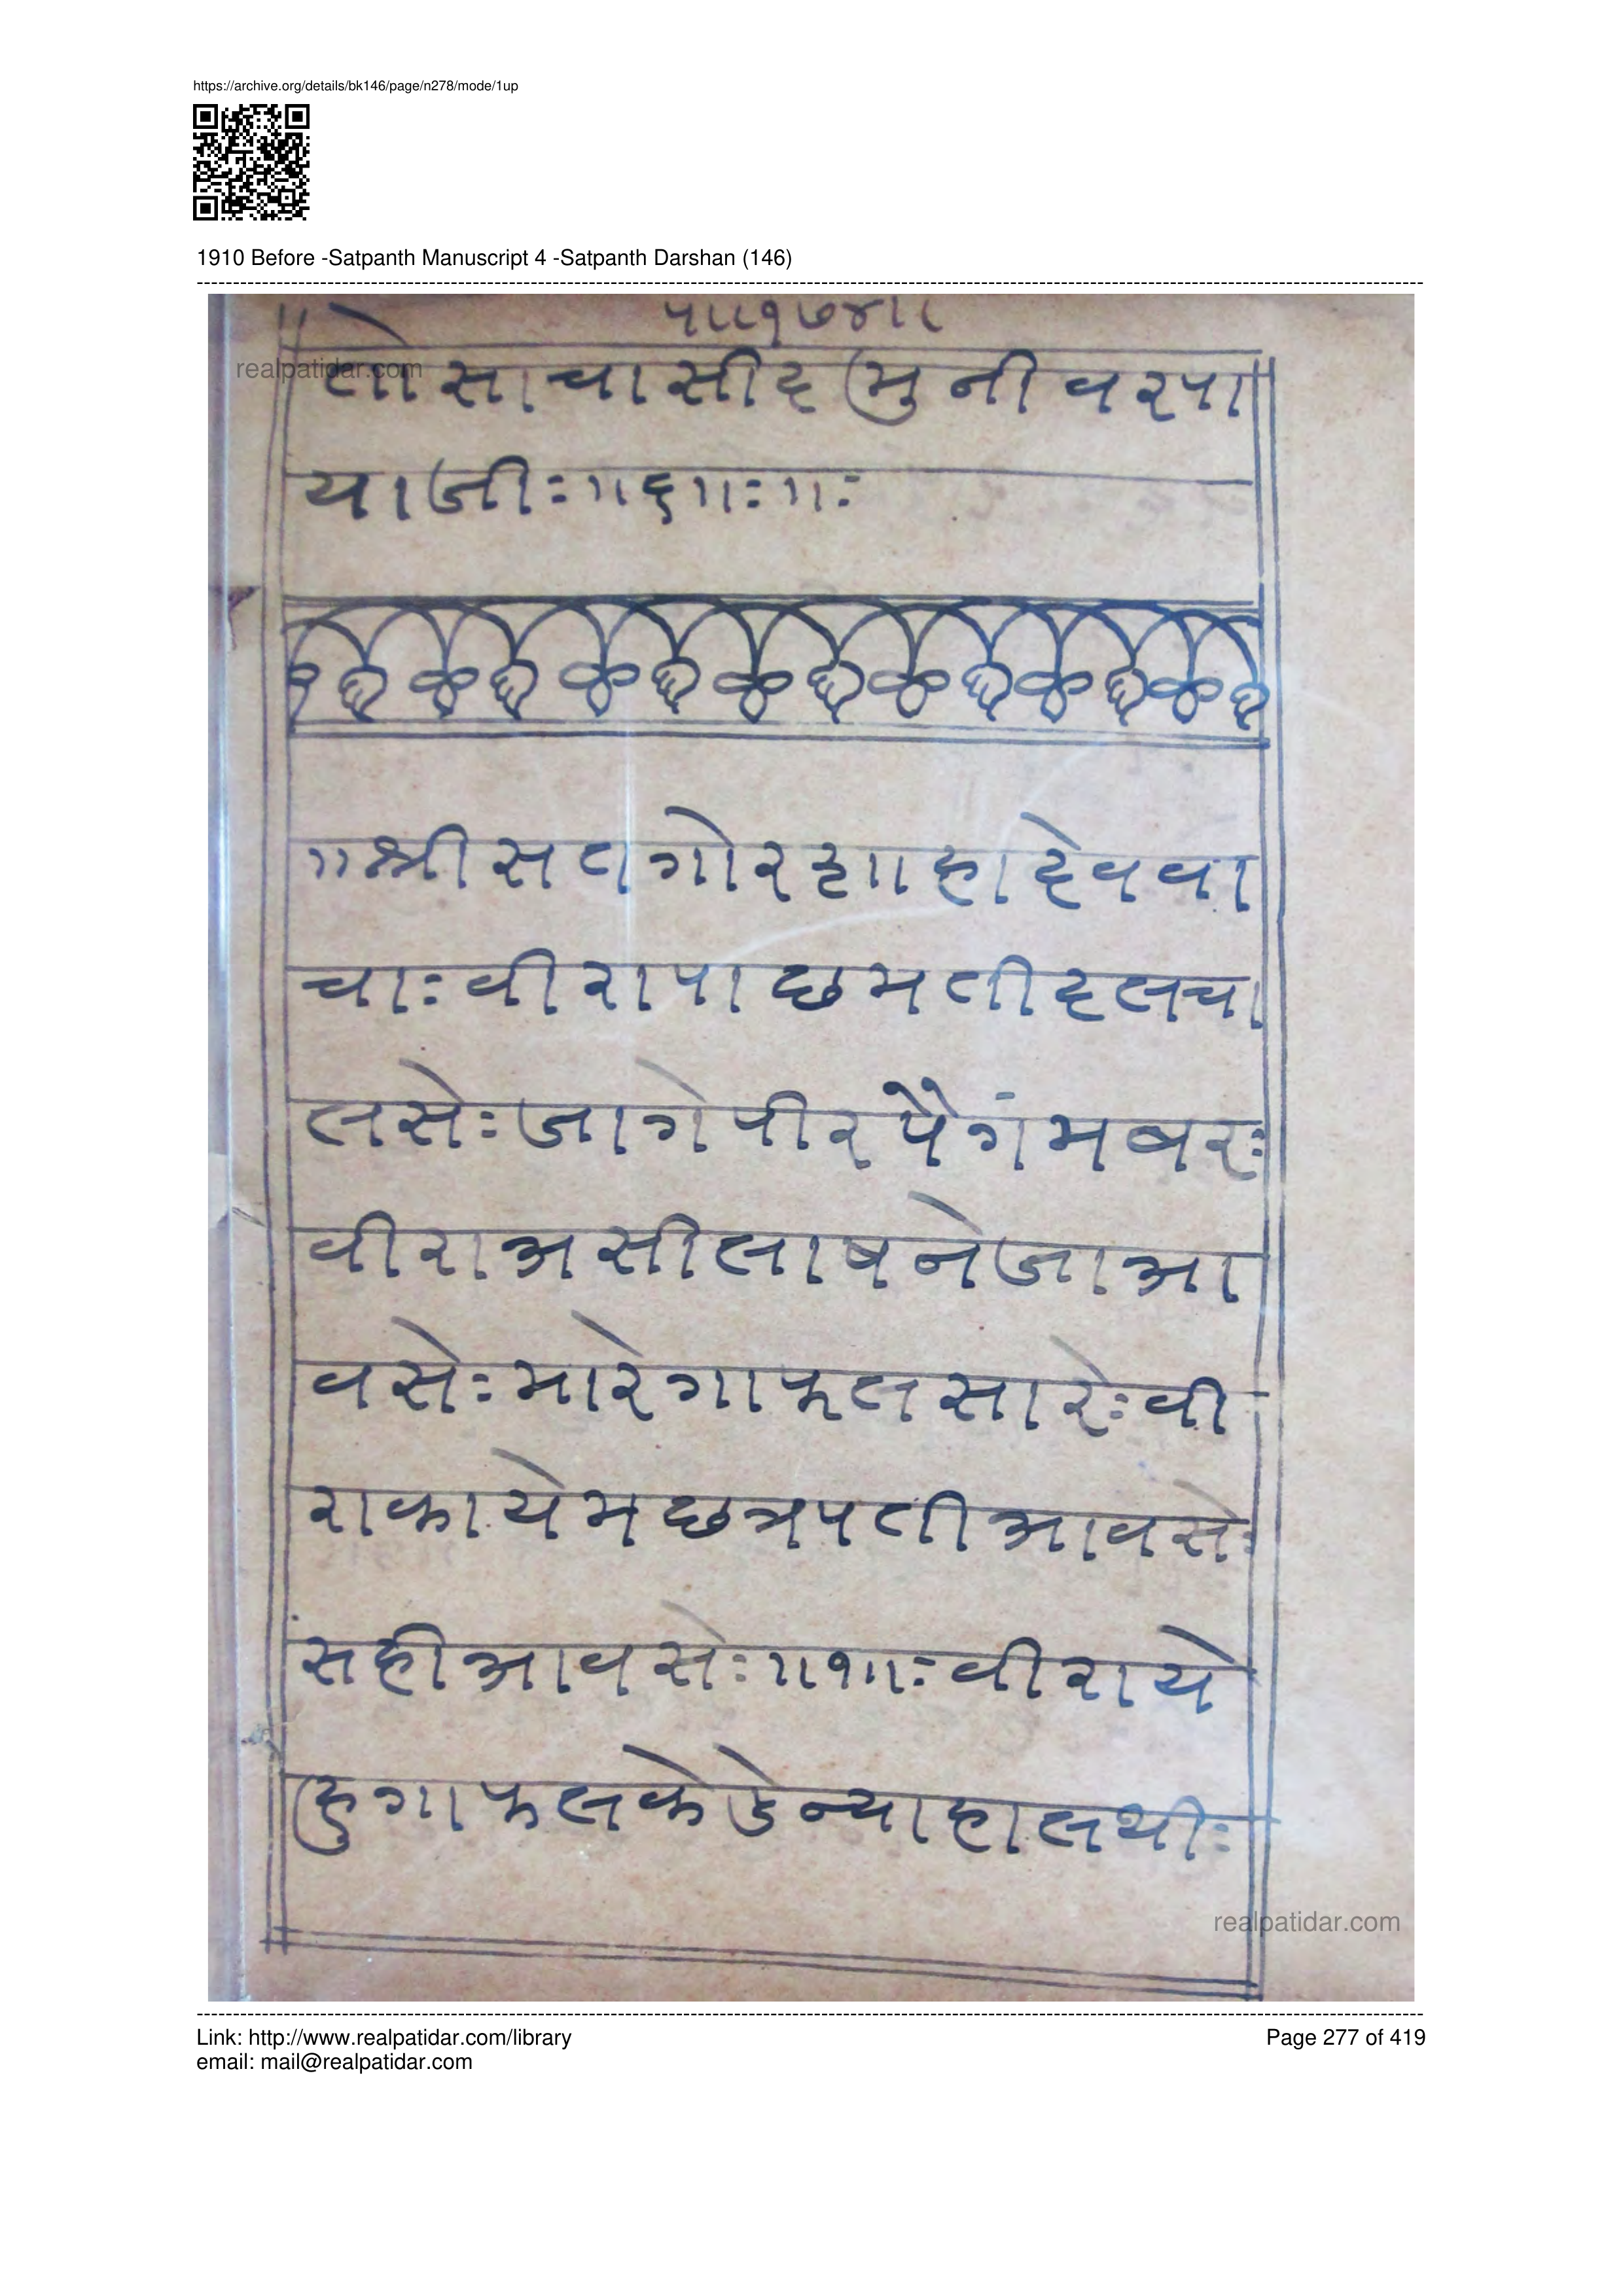 https://archive.org/details/bk146/page/n278/mode/1up
1910 Before -Satpanth Manuscript 4 -Satpanth Darshan (146)
प।।१७४।।
realpatidar.com
तो साचा सीद मुनी वर पा
या जीः ।।६।।ः ।।ः
।। श्री सतगोर
चाः वीरा पाछमती दल चा
लसेः जागे पीर पैगंमबरः
वीरा असी लाष नेजा आ
वसेः मारे गाफल सारेः वी
रा कायेम छत्रपती आवसेः
सही आवसेः ।।१।।ः वीरा ये
हु गाफल केडे न्या हालथीः
realpatidar.com
Link: http://www.realpatidar.com/library
Page 277 of 419
email: mail@realpatidar.com